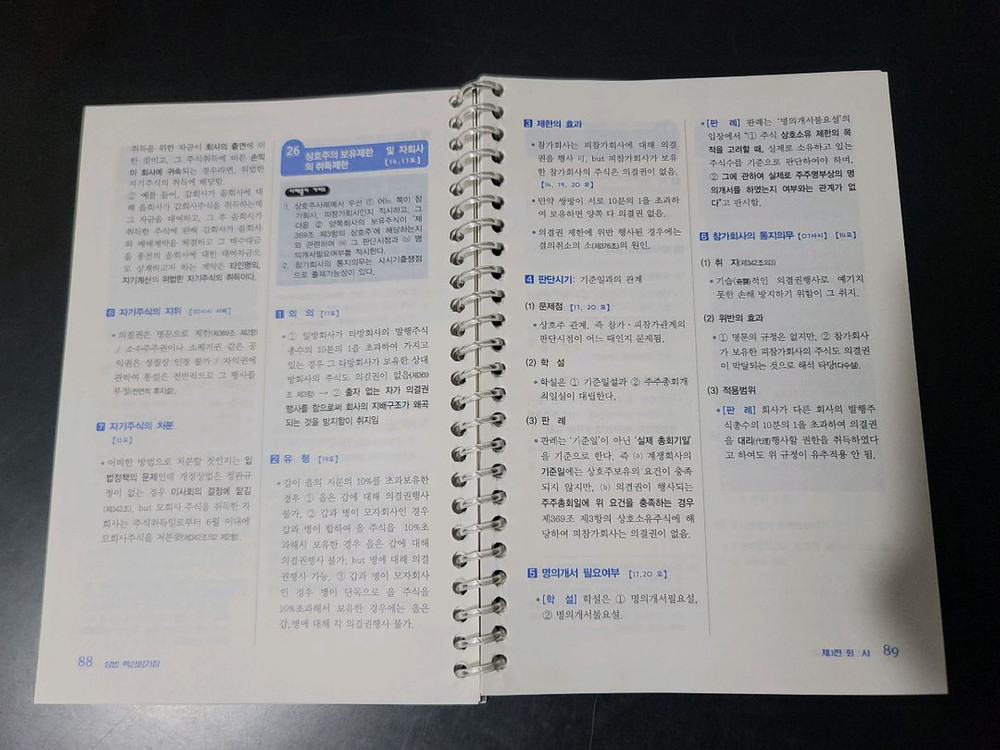 취득을 위한 자금이 회사의 출연에 의
한 것이고, 그 주식취득에 따른 손익
이 회사에 귀속되는 경우라면, 위법한
자기주식의 취득에 해당함.
② 예를 들어, 갑회사가 을회사에 대
해 을회사가 갑회사주식을 취득하는데
그 자금을 대여하고, 그 후 을회사가
취득한 주식에 관해 갑회사가 을회사
와 매매계약을 체결하고 그 매수대금
을 종전의 을회사에 대한 대여자금으
로 상계하고자 하는 계약은 타인명의,
자기계산의 위법한 자기주식의 취득이다.
6 자기주식의 지위
• 의결권은 명문으로 제한(제369조 제2항)
/ 소수주주권이나 소제기권 같은 공
익권은 성질상 인정 불가 / 자익권에
관하여 통설은 전반적으로 그 행사를
부정(전면적 휴지설).
7 자기주식의 처분
[15모]
• 어떠한 방법으로 처분할 것인지는 입
법정책의 문제인데 개정상법은 정관규
정이 없는 경우 이사회의 결정에 맡김
(제342조). but 모회사 주식을 취득한 자
회사는 주식취득일로부터 6월 이내에
모회사주식을 처분못(제342조의2 제2항).
88 상법 핵심암기장
26 상호주의 보유제한 및 자회사
의 취득제한 [14,17모]
사례풀이 가이드
1. 상호주사례에서 우선 ① 어느 쪽이 참
가회사, 피참가회사인지 적시하고, 그
다음 ② 양쪽회사의 보유주식이 '제
369조 제3항의 상호주'에 해당하는지
와 관련하여 ⒜ 그 판단시점과 ⒝ 명
의개서필요여부를 적시한다.
2. 참가회사의 통지의무는 사시기출쟁점
으로 출제가능성이 있다.
1 의 의 [17모]
• ① 일방회사가 타방회사의 발행주식
총수의 10분의 1을 초과하여 가지고
있는 경우 그 타방회사가 보유한 상대
방회사의 주식도 의결권이 없음(제369
조 제3항) → ② 출자 없는 자가 의결권
행사를 함으로써 회사의 지배구조가 왜곡
되는 것을 방지함이 취지임
2 유 형 [19모]
• 갑이 을의 지분의 10%를 초과보유한
경우 ① 을은 갑에 대해 의결권행사
불가. ② 갑과 병이 모자회사인 경우
갑과 병이 합하여 을 주식을 10%초
과해서 보유한 경우 을은 갑에 대해
의결권행사 불가, but 병에 대해 의결
권행사 가능, ③ 갑과 병이 모자회사
인 경우 병이 단독으로 을 주식을
10%초과해서 보유한 경우에는 을은
갑,병에 대해 각 의결권행사 불가.
3 제한의 효과
• 참가회사는 피참가회사에 대해 의결
권을 행사 可, but 피참가회사가 보유
한 참가회사의 주식은 의결권이 없음.
[14, 19, 20 모]
• 만약 쌍방이 서로 10분의 1을 초과하
여 보유하면 양쪽 다 의결권 없음.
• 의결권 제한에 위반 행사된 경우에는
결의취소의 소(제376조)의 원인.
4 판단시기: 기준일과의 관계
(1) 문제점 [17, 20 모]
• 상호주 관계, 즉 참가·피참가관계의
판단시점이 어느 때인지 문제됨.
(2) 학 설
• 학설은 ① 기준일설과 ② 주주총회개
최일설이 대립한다.
(3) 판 례
• 판례는 '기준일'이 아닌 '실제 총회기일'
을 기준으로 한다. 즉 ⒜ 계쟁회사의
기준일에는 상호주보유의 요건이 충족
되지 않지만, ⒝ 의결권이 행사되는
주주총회일에 위 요건을 충족하는 경우
제369조 제3항의 상호소유주식에 해
당하여 피참가회사는 의결권이 없음.
5 명의개서 필요여부 [17,20 모]
• [학 설] 학설은 ① 명의개서필요설,
② 명의개서불요설.
• [판 례] 판례는 '명의개서불요설'의
입장에서 "① 주식 상호소유 제한의 목
적을 고려할 때, 실제로 소유하고 있는
주식수를 기준으로 판단하여야 하며,
② 그에 관하여 실제로 주주명부상의 명
의개서를 하였는지 여부와는 관계가 없
다"고 판시함.
6 참가회사의 통지의무 [07사시] [14모]
(1) 취 지(제342조의3)
• 기습(奇襲)적인 의결권행사로 예기치
못한 손해 방지하기 위함이 그 취지.
(2) 위반의 효과
• ① 명문의 규정은 없지만, ② 참가회사
가 보유한 피참가회사의 주식도 의결권
이 박탈되는 것으로 해석 타당(다수설).
(3) 적용범위
• [판 례] 회사가 다른 회사의 발행주
식총수의 10분의 1을 초과하여 의결권
을 대리(代理)행사할 권한을 취득하였다
고 하여도 위 규정이 유추적용 안 됨.
제3편 회 사 89